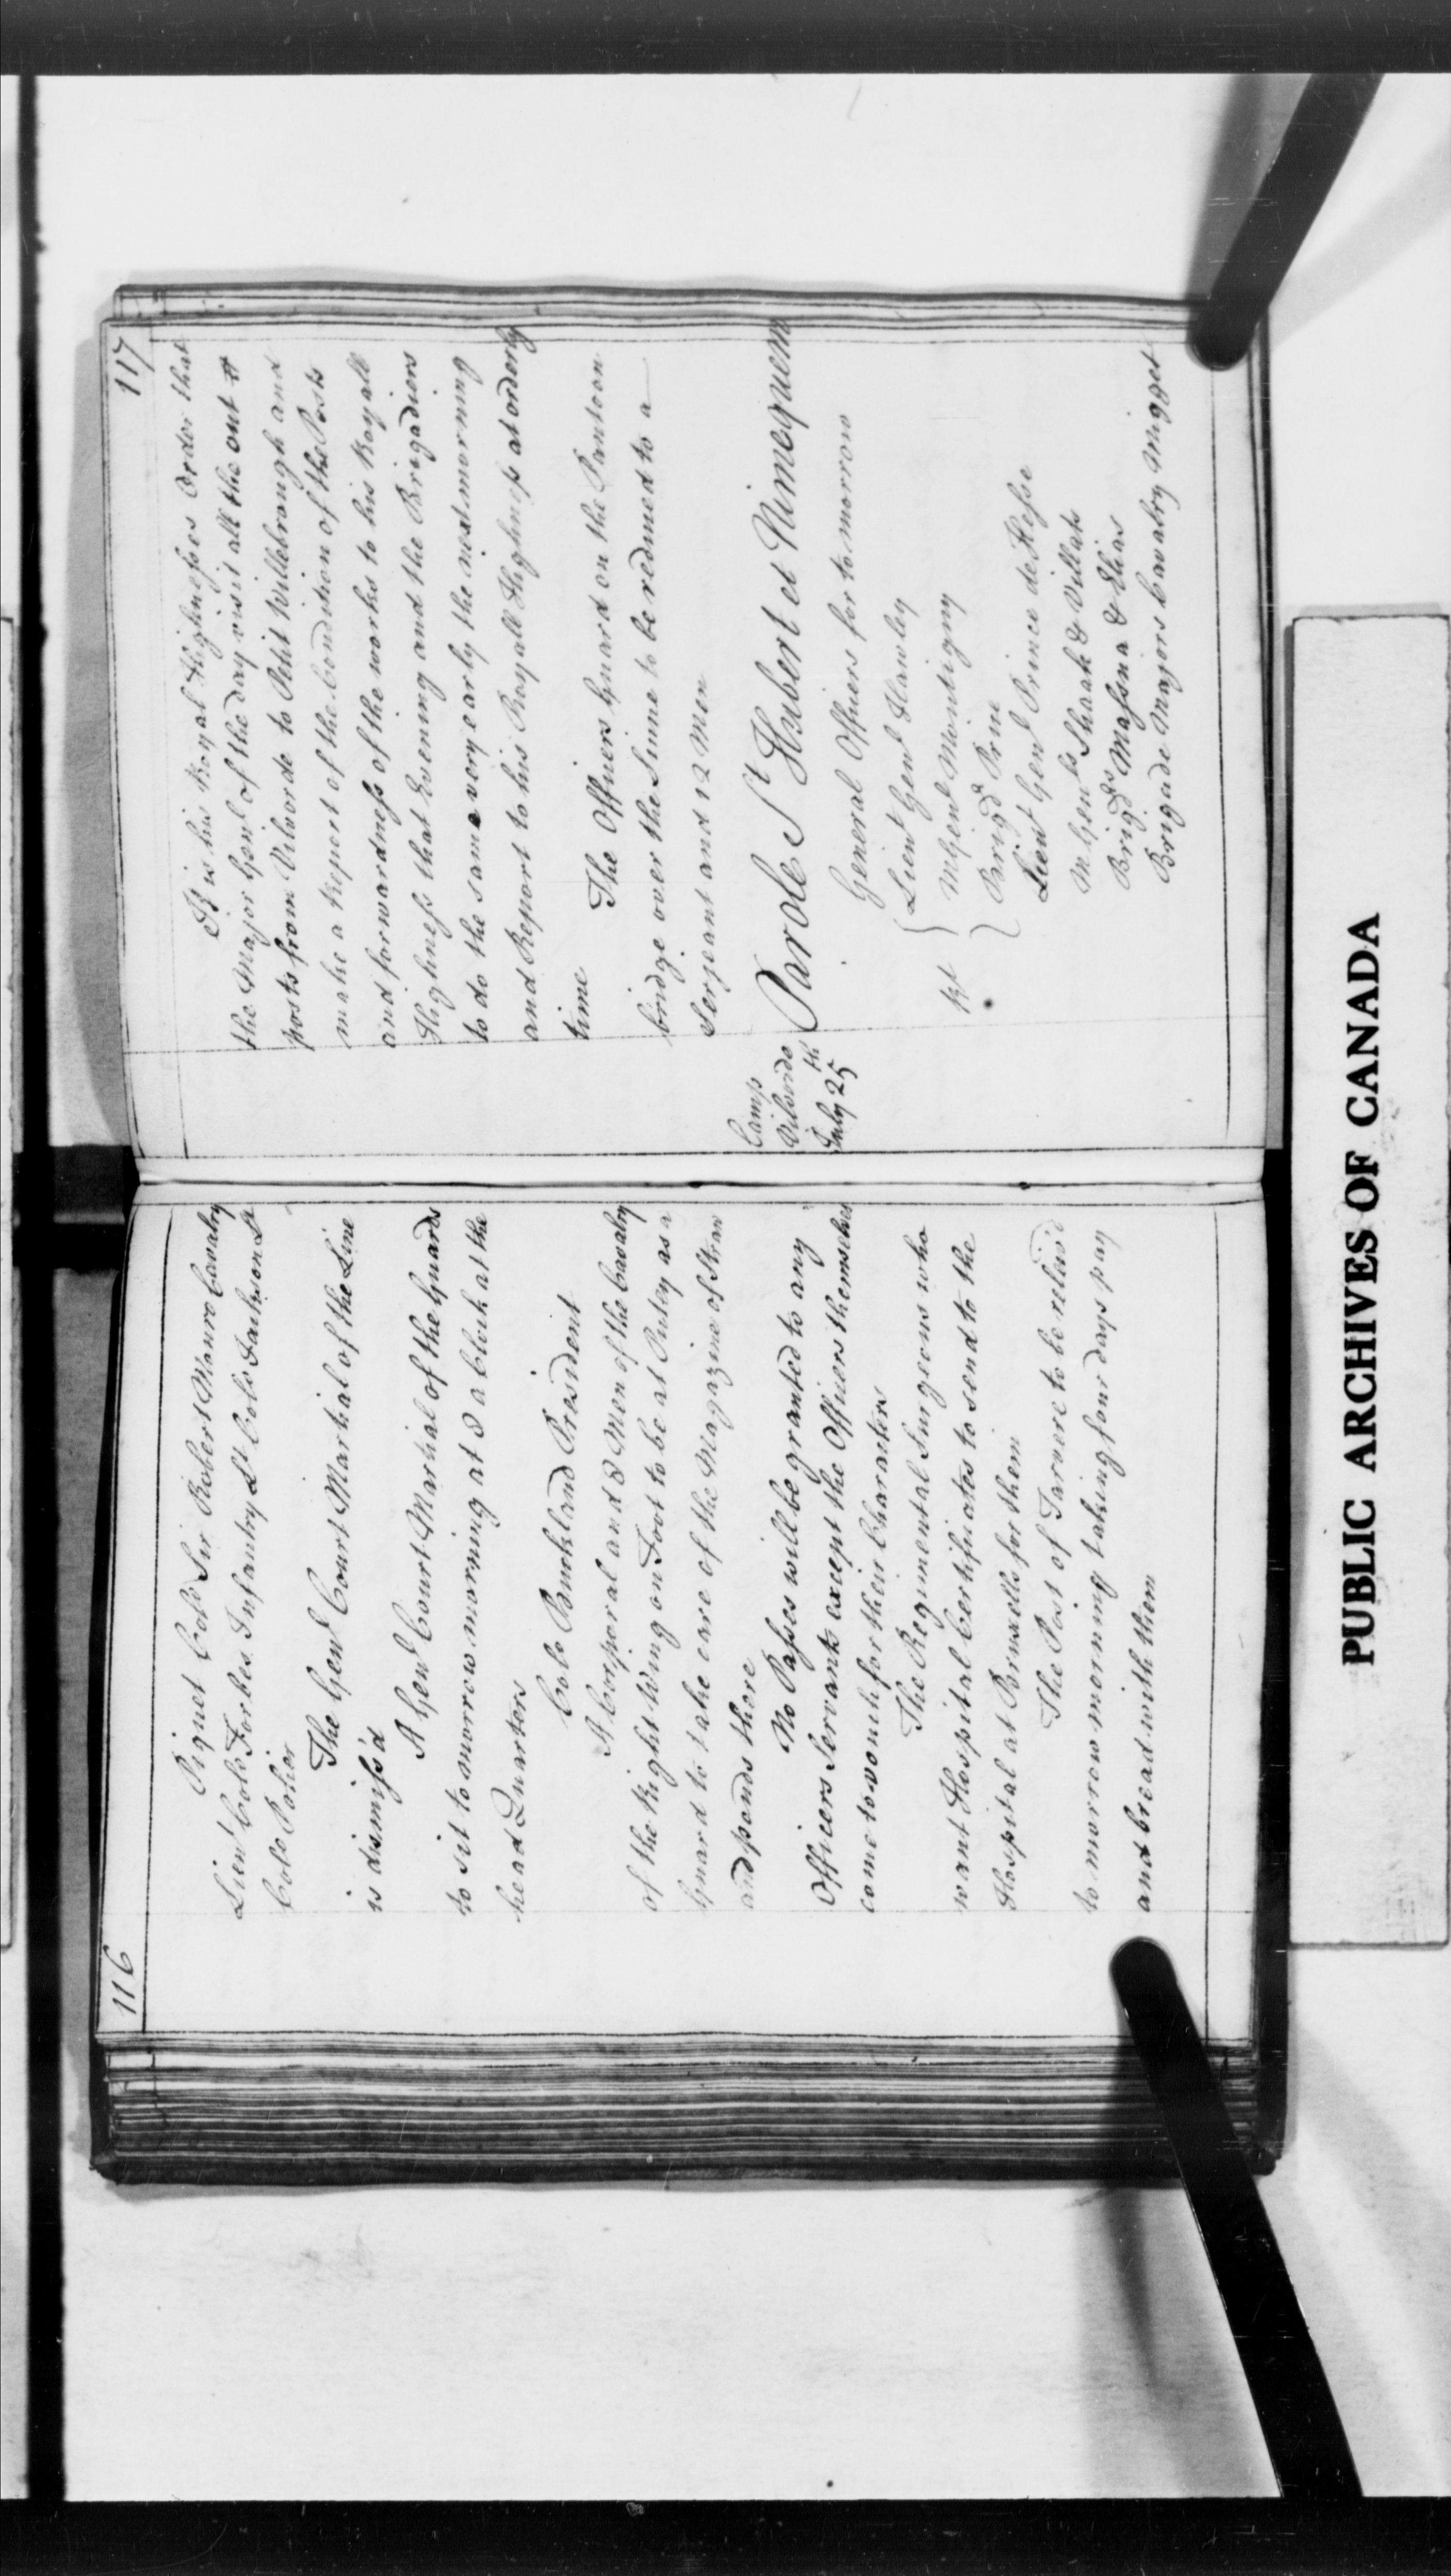 116
Piquet Colo Sir Robert Munro Cavalry
Lieut Colo Forbes Infantry Lt Colo Lt
Colo
The Genl Court Martial of the Line
is dismiss'd
A Genl Court Martial of the Guards
to sit to morrow morning at 8 a Clock at the
head Quarters
Colo Buckland President
A Corporal and 8 Men of the Cavalry
of the Right Wing on Foot to be at as a
Guard to take care of the Magazine of Straw
and there
No Passes will be granted to any
Officers Servants except the Officers themselves
come to vouch for their Characters
The Regimental Surgeons who
want Hospital Certificates to send to the
Hospital at Bruxells for them
The Post of Tarvere to be reliev'd
to morrow morning taking four days pay
and bread with them
117
It is his Royal Highnesses Order that
the Major Genl of the day visit all the out
posts from Vilvorde to Petit Willebrough and
make a Report of the Condition of the Posts
and forwardness of the works to his Royall
Highness that Evening and the Brigadiers
to do the same very early the next morning
and Report to his Royall Highness at orderly
time
The Officers Guard on the Pantoon
bridge over the Sinne to be reduced to a
Serjeant and 12 Men
Camp
Vilvorde
July 25th
Parole St Hubert et Nimequem
General Officers for to morrow
Lieut Genl Hawley
MGenl Montigny
Brigd
Lieut Genl Prince de Hesse
M Genls Shaak & Villats
Brigds Massna & Elias
Brigade Majors Cavalry Migget
PUBLIC ARCHIVES OF CANADA